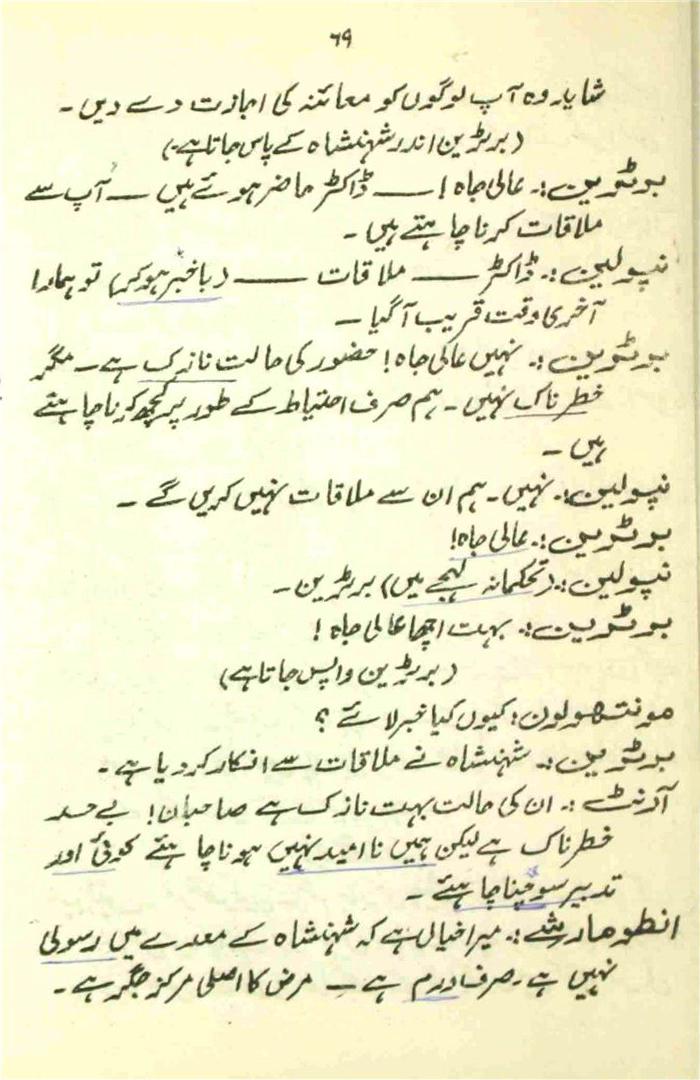 ۶۹
شاید وہ آپ لوگوں کو معائنہ کی اجازت دے دیں۔
(برٹرین اندر شہنشاہ کے پاس جاتا ہے۔)
برٹرین:۔ عالی جاہ! — ڈاکٹر حاضر ہوئے ہیں — آپ سے
ملاقات کرنا چاہتے ہیں۔
نپولین:۔ ڈاکٹر — ملاقات — (باخبر ہوکر) تو ہمارا
آخری وقت قریب آگیا —
برٹرین:۔ نہیں عالی جاہ! حضور کی حالت نازک ہے۔ مگر
خطرناک نہیں۔ ہم صرف احتیاط کے طور پر کچھ کرنا چاہتے
ہیں۔
نپولین:۔ نہیں۔ ہم ان سے ملاقات نہیں کریں گے۔
برٹرین:۔ عالی جاہ!
نپولین:۔ (تحکمانہ لہجے میں) برٹرین۔
برٹرین:۔ بہت اچھا عالی جاہ!
(برٹرین واپس جاتا ہے)
مونتھولون: کیوں کیا خبر لائے؟
برٹرین:۔ شہنشاہ نے ملاقات سے انکار کردیا ہے۔
آرنٹ:۔ ان کی حالت بہت نازک ہے صاحبان! بے حد
خطرناک ہے لیکن ہمیں ناامید نہیں ہونا چاہئے کوئی اور
تدبیر سوچنا چاہئے۔
انطومارشے:۔ میرا خیال ہے کہ شہنشاہ کے معدے میں رسولی
نہیں ہے۔ صرف ورم ہے — مرض کا اصلی مرکز جگر ہے۔